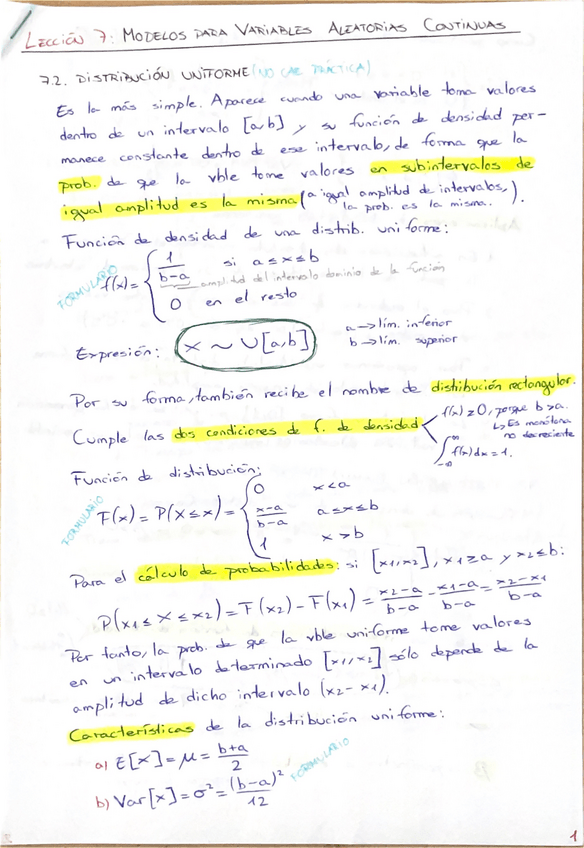 LECCIÓN 7: MODELOS PARA VARIABLES ALEATORIAS CONTINUAS
7.2. DISTRIBUCIÓN UNIFORME (NO CAE PRÁCTICA)
Es la más simple. Aparece cuando una variable toma valores
dentro de un intervalo [a,b] y su función de densidad per-
manece constante dentro de ese intervalo, de forma que la
prob. de que la vble tome valores en subintervalos de
igual amplitud es la misma (a igual amplitud de intervalos,
la prob. es la misma.).
Función de densidad de una distrib. uniforme:
FORMULARIO
f(x) = { 1/(b-a) si a ≤ x ≤ b
amplitud del intervalo dominio de la función
0 en el resto
Expresión: X ~ U[a,b]
a → lím. inferior
b → lím. superior
Por su forma, también recibe el nombre de distribución rectangular.
Cumple las dos condiciones de f. de densidad
f(x) ≥ 0, porque b > a.
↳ Es monótona
no decreciente
∫_{-∞}^{∞} f(x)dx = 1.
Función de distribución:
FORMULARIO
F(x) = P(X ≤ x) = { 0 x < a
(x-a)/(b-a) a ≤ x ≤ b
1 x > b
Para el cálculo de probabilidades: si [x1,x2], x1 ≥ a y x2 ≤ b:
P(x1 ≤ X ≤ x2) = F(x2) - F(x1) = (x2-a)/(b-a) - (x1-a)/(b-a) = (x2-x1)/(b-a)
Por tanto, la prob. de que la vble uniforme tome valores
en un intervalo determinado [x1,x2] sólo depende de la
amplitud de dicho intervalo (x2-x1).
Características de la distribución uniforme:
a) E[X] = μ = (b+a)/2
b) Var[X] = σ² = (b-a)²/12
FORMULARIO
1